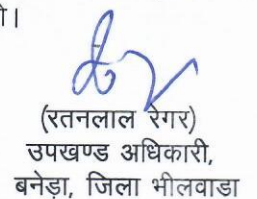 ो।
(रतनलाल रेगर)
उपखण्ड अधिकारी,
बनेड़ा, जिला भीलवाडा